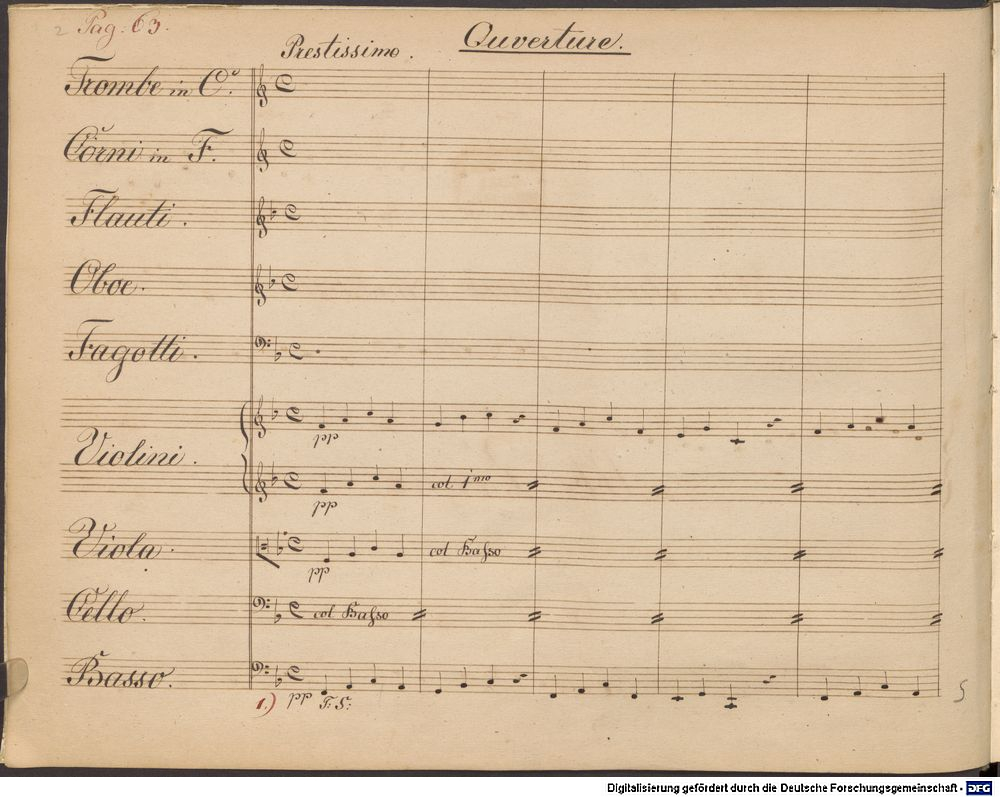 2 Pag. 63.
Ouverture.
Prestissimo.
Trombe in C.
Corni in F.
Flauti.
Oboe.
Fagotti.
pp
Violini.
col 1mo
pp
Viola.
col Basso
pp
Cello.
col Basso
Basso.
1.) pp T: S:
5
Digitalisierung gefördert durch die Deutsche Forschungsgemeinschaft - DFG